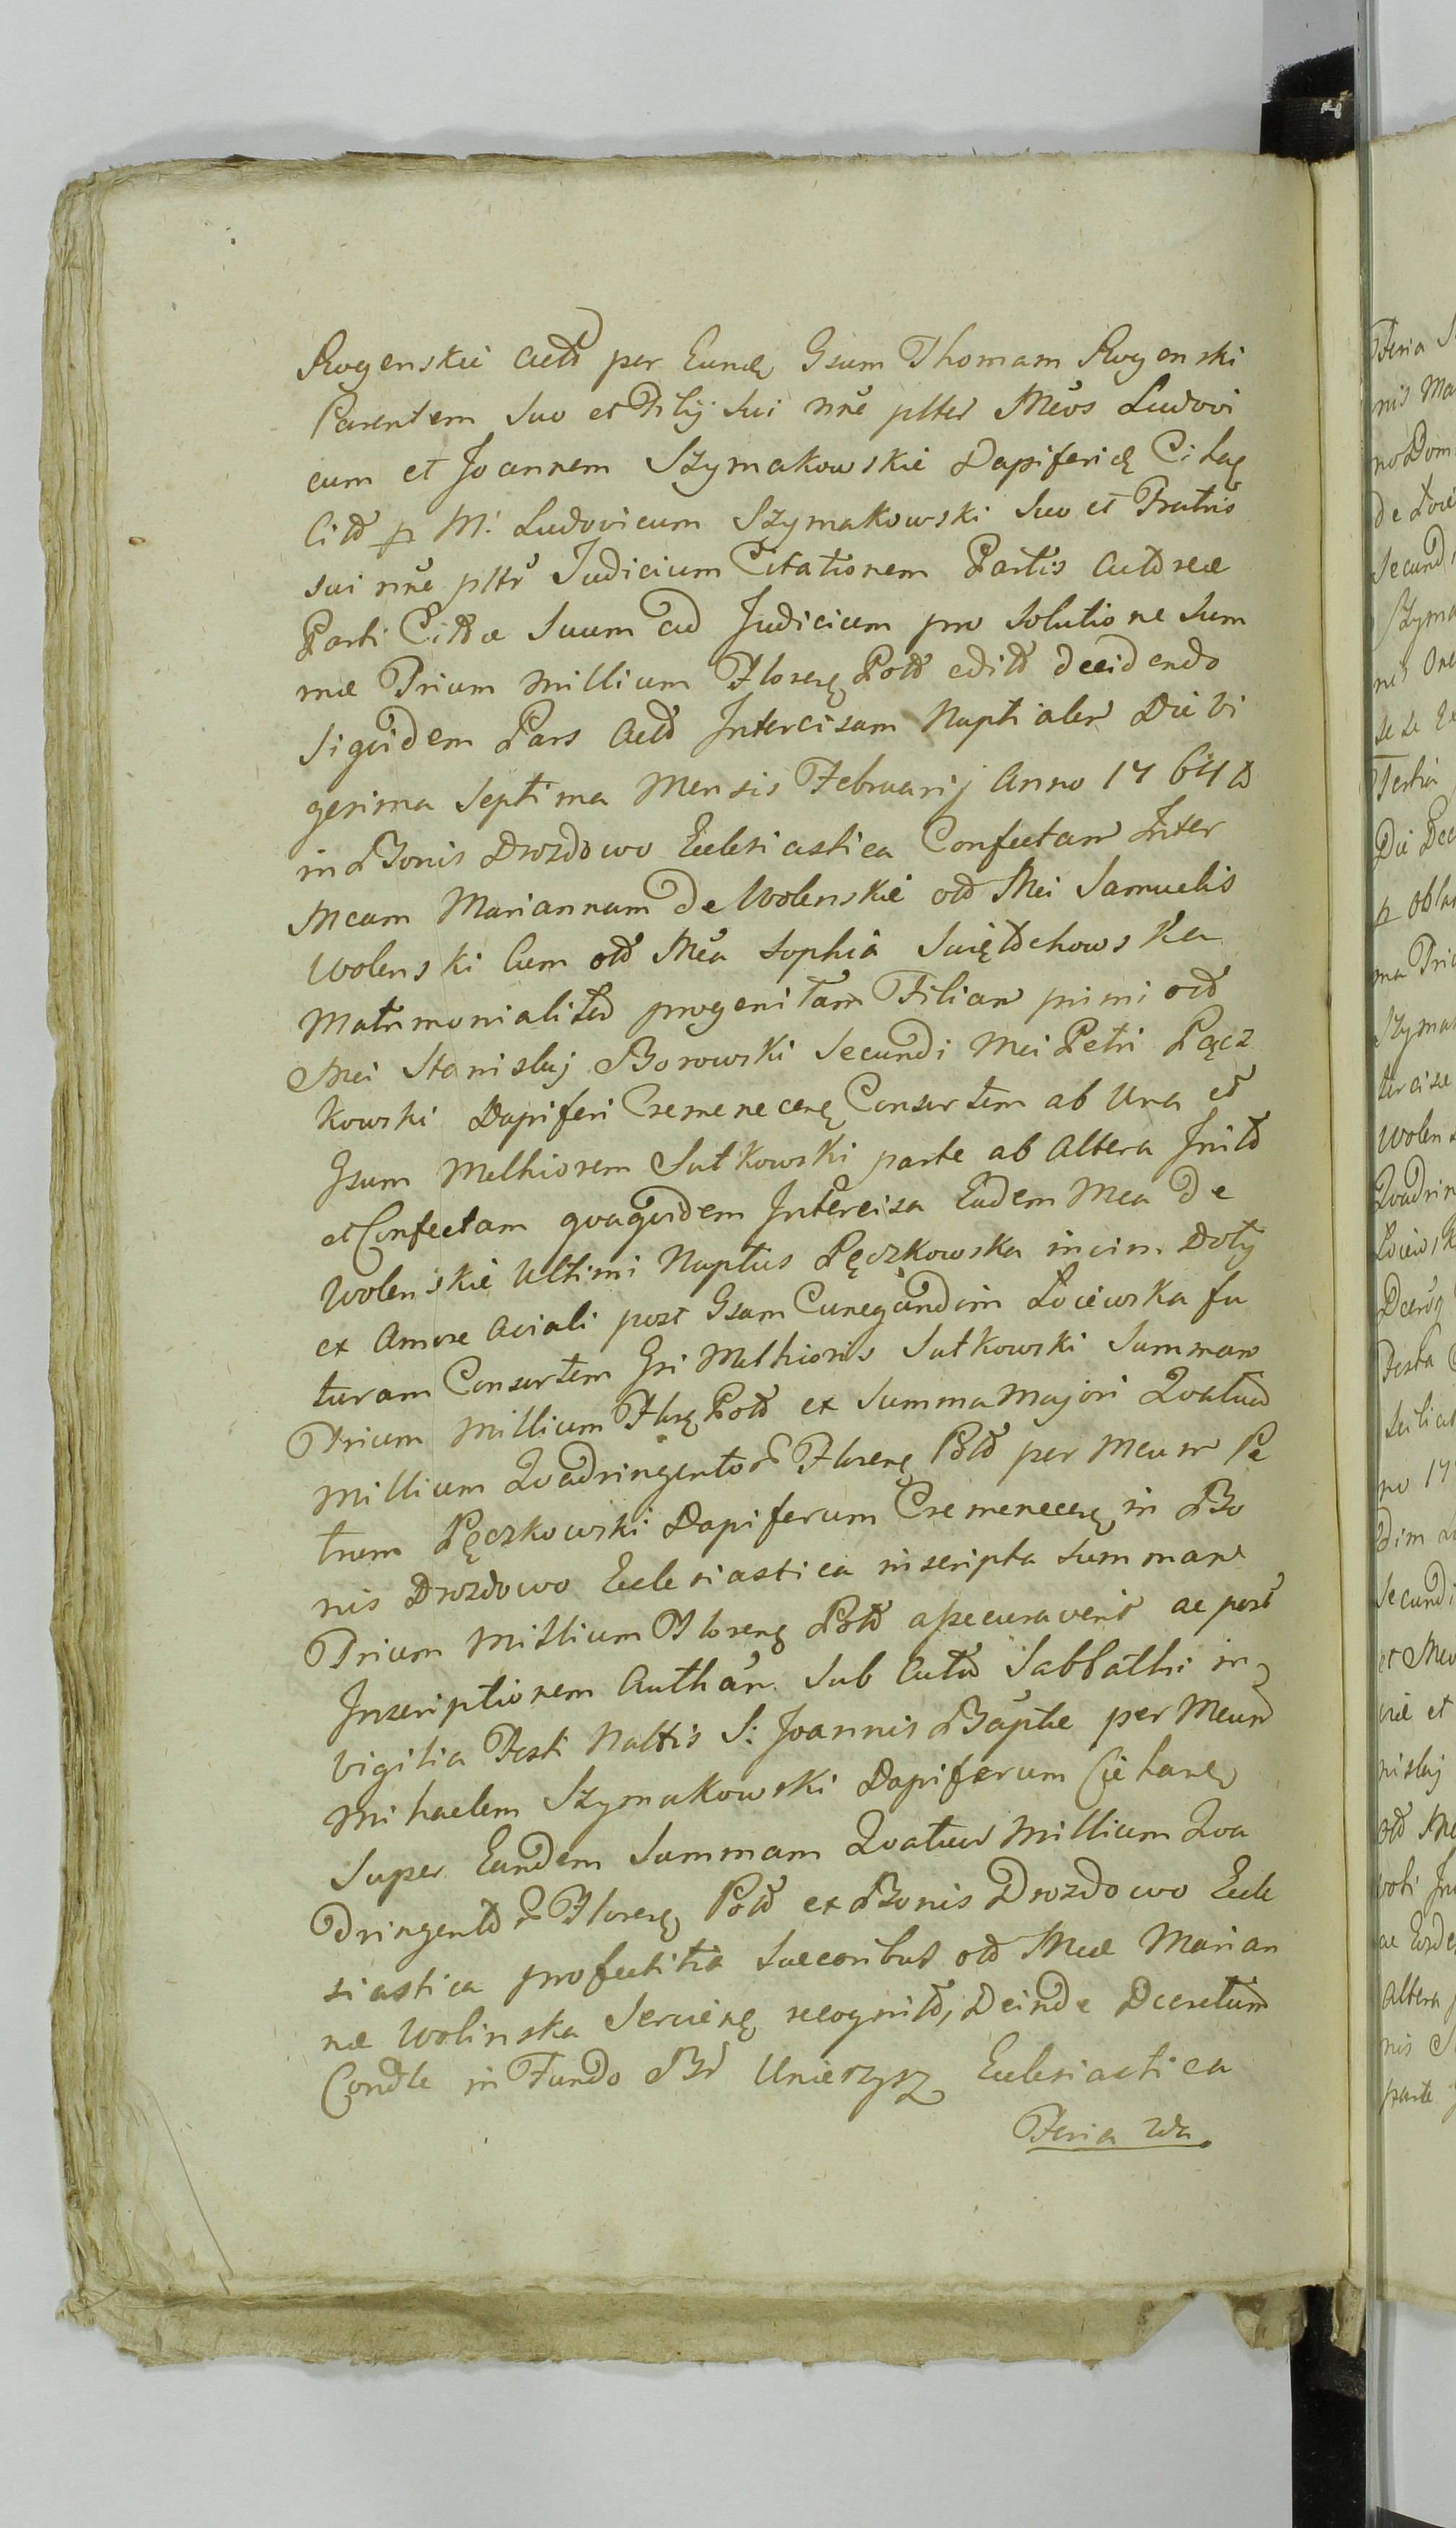 Rogenskie Actt per Eundę Gsum Thomam Rogenski
Parentem Suo et Filij sui nñe plter Meos Ludovi
cum et Joannem Szymakowskie Dapiferidę Cihaę
Citt pr M. Ludovicum Szymakowski Suo et Fratris
sui nñe pltr Judicium Citationem Partis Acttreæ
Parti Cittæ Suum ad Judicium pro Solutione Sum
mæ Trium Millium Florenę Poltt editt decidendo
Siquidem Pars Actt Intercisam Nuptialem Die Vi
gesima Septima Mensis Februarij Anno 1764tt
in Bonis Drozdowo Ecclesiastica Confectam Inter
Meam Mariannam De Wolenskie ott Mei Samuelis
Wolenski Cum ott Mea Sophia Swiętochowska
Matrimonialiter progenitam Filiam primi ott
Mei Stanislaj Borowski Secundi Mei Petri Pącz
kowski Dapiferi Cremenecenę Consortem ab Una et
Gsum Melhiorem Sutkowski parte ab Altera Initt
et Confectam quaquidem Intercisa Eadem Mea De
Wolenskie Ultimi Nuptus Pęczkowska in vim Doty
ex Amore Aviali post Gsam Cunegundim Łoiewska fu
turam Consortem Gsi Melhioris Sutkowski Summam
Trium Millium Florę Poltt ex Summa Majori Quatuor
Millium Quadringentor Florenę Poltt per Meum Pe
trum Pęczkowski Dapiferum Cremenecenę in Bo
nis Drozdowo Ecclesiastica inscripta Summam
Trium Millium Florenę Poltt assecuraverit ac post
Inscriptionem Authan Sub Acttu Sabbathi in
Vigilia Festi Naltis S: Joannis Baptæ per Meum
Mihaelem Szymakowski Dapiferum Ciehanę
Super Eandem Summam Quatuor Millium Qua
dringenttr Florenę Poltt ex Bonis Drozdowo Eccle
siastica profectitia Succoribus ott Meæ Marian
næ Wolinska Servienę recognitt, Deinde Dcretum
Condle in Fundo Br Unierzysz Ecclesiastica
Feria 2da